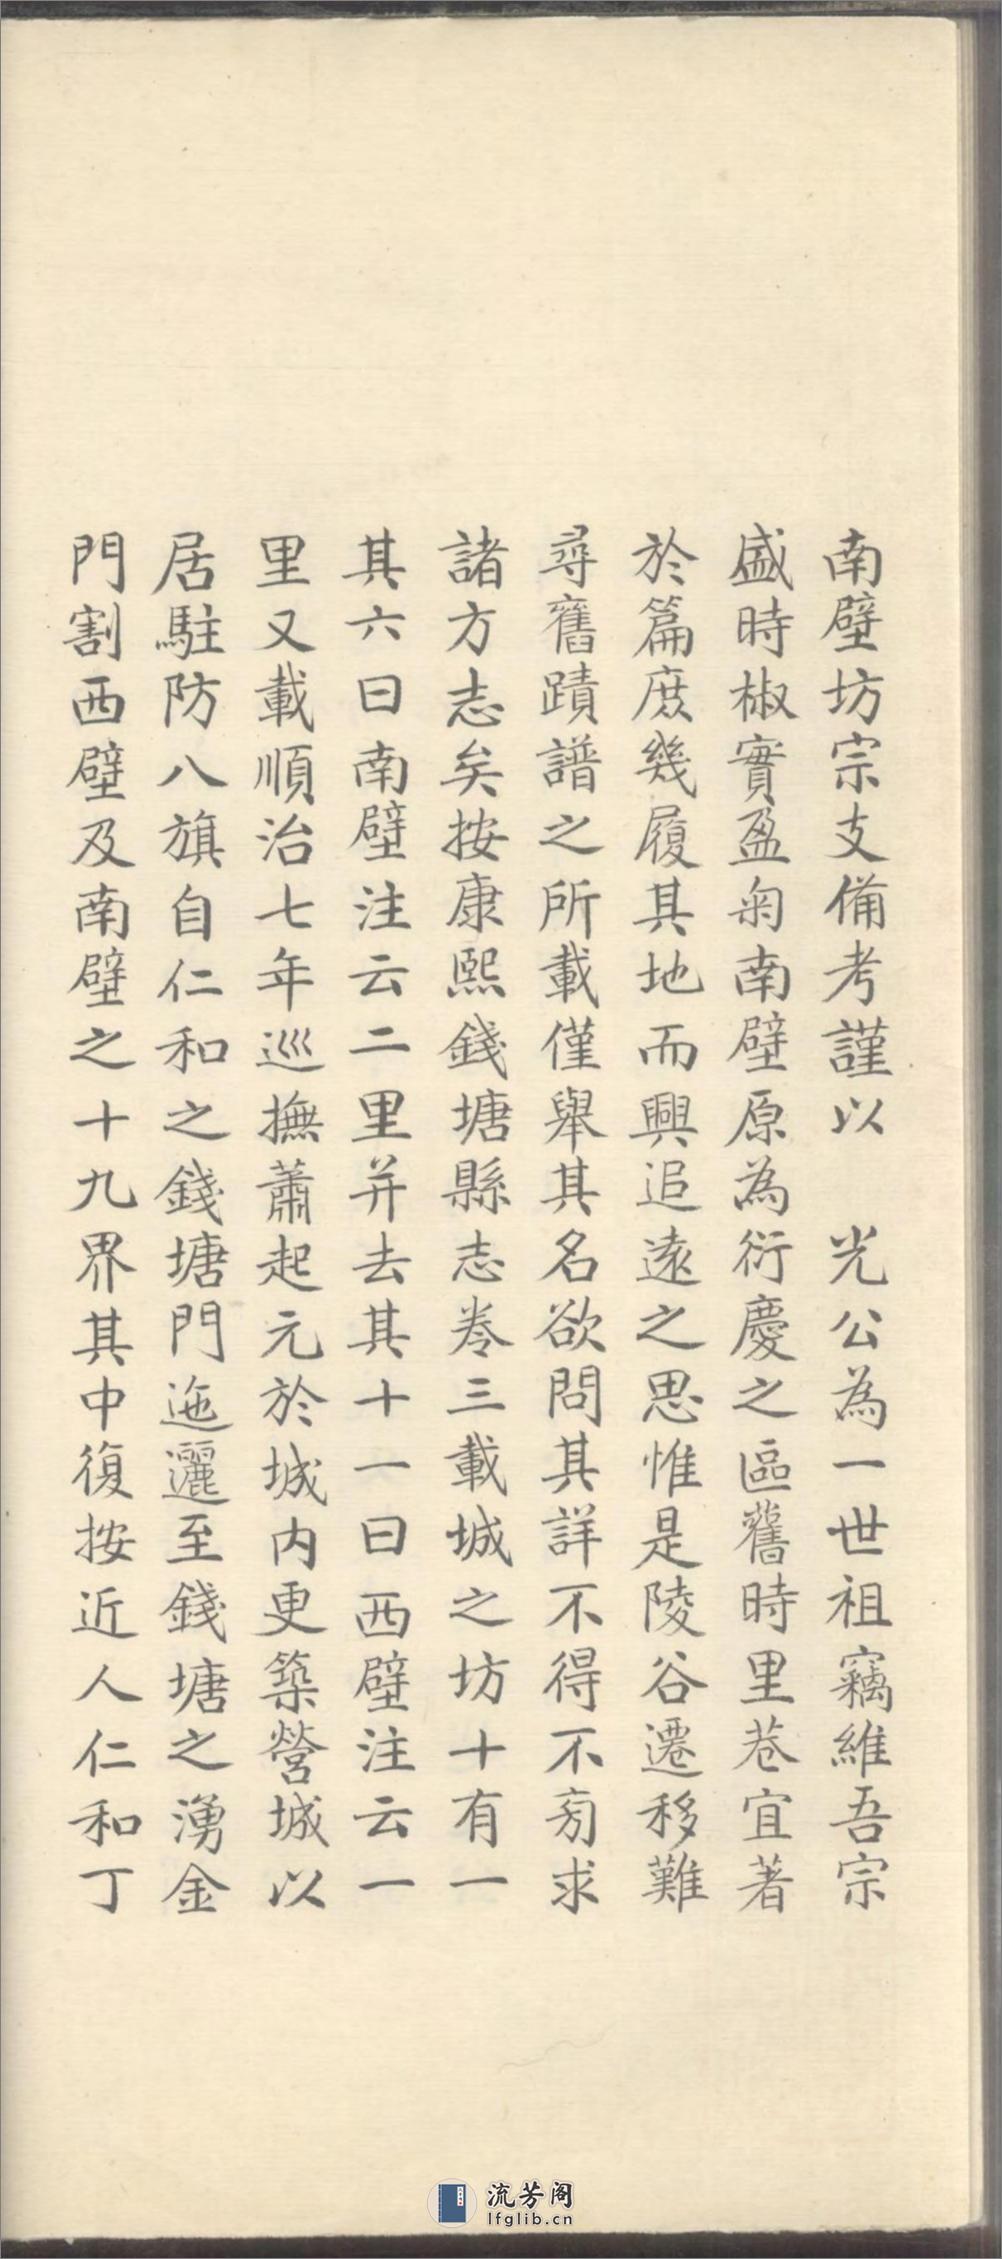 南壁坊宗支備考謹以　光公為一世祖竊維吾宗
盛時椒實盈匊南壁原為衍慶之區舊時里巷宜著
於篇庶幾履其地而興追遠之思惟是陵谷遷移難
尋舊蹟譜之所載僅舉其名欲問其詳不得不旁求
諸方志矣按康熙錢塘縣志卷三載城之坊十有一
其六曰南壁注云二里并去其十一曰西壁注云一
里又載順治七年巡撫蕭起元於城内更築營城以
居駐防八旗自仁和之錢塘門迤邐至錢塘之湧金
門割西壁及南壁之十九界其中復按近人仁和丁
流芳阁
lfglib.cn